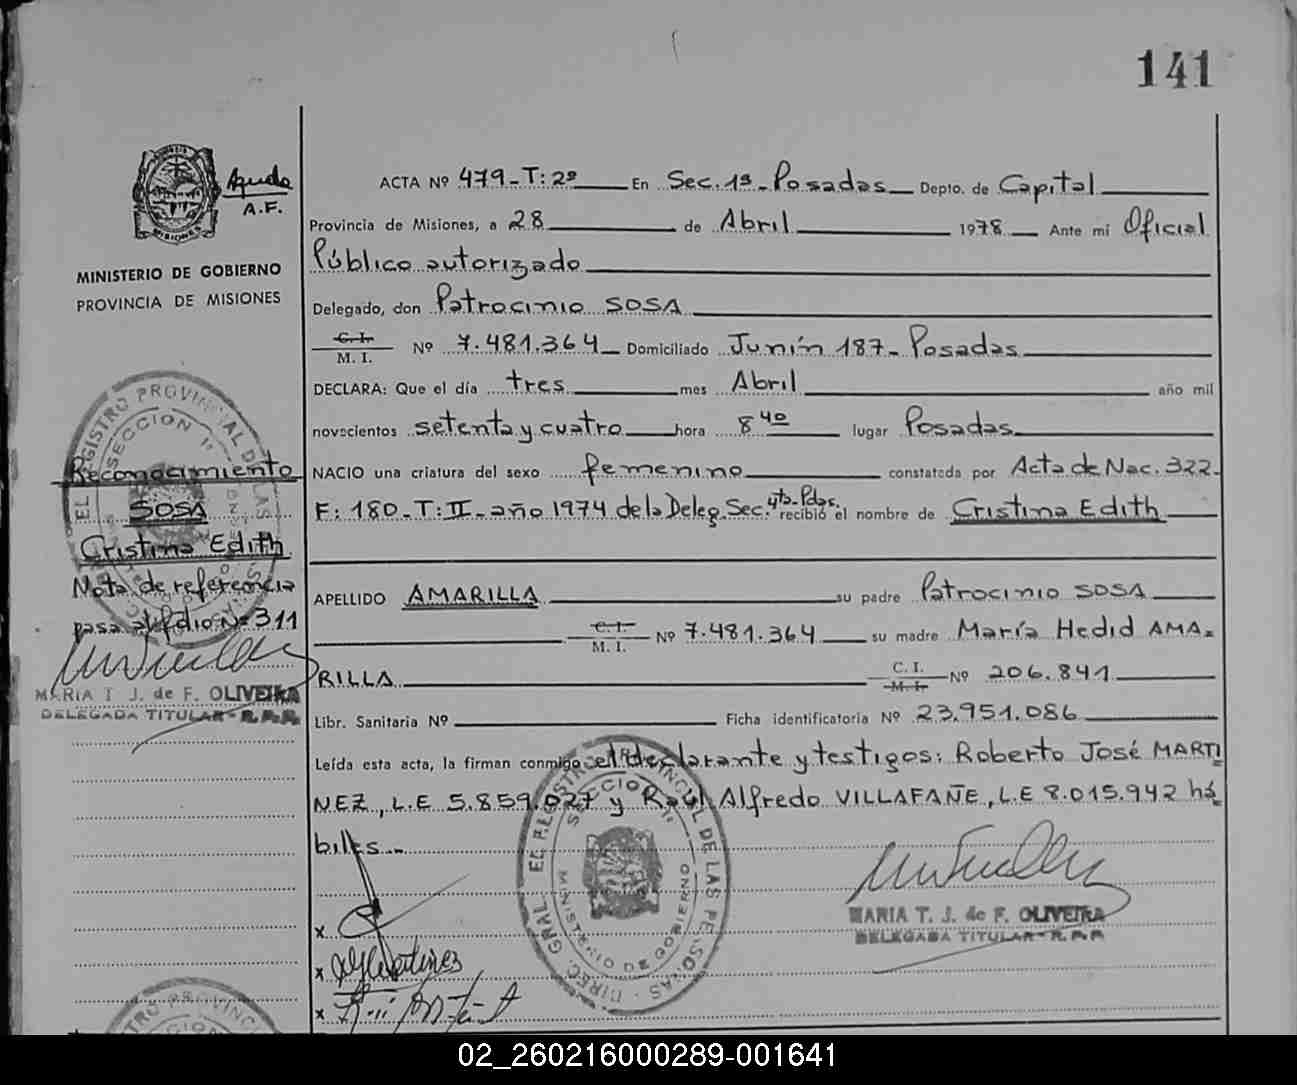 141
Aguda
A.F.
MINISTERIO DE GOBIERNO
PROVINCIA DE MISIONES
ACTA Nº 479-T:2º En Sec.1ª-Posadas Depto. de Capital
Provincia de Misiones, a 28 de Abril 1978 Ante mi Oficial
Público autorizado
Delegado, don Patrocinio SOSA
C. I.
M. I. Nº 7.481.364 Domiciliado Junín 187-Posadas
DECLARA: Que el día tres mes Abril año mil
novecientos setenta y cuatro hora 8 40 lugar Posadas
NACIO una criatura del sexo femenino constatada por Acta de Nac. 322-
F: 180-T: II-año 1974 de la Deleg. Sec. 4ta. Pdas. recibió el nombre de Cristina Edith
APELLIDO AMARILLA su padre Patrocinio SOSA
C. I.
M. I. Nº 7.481.364 su madre María Hedid AMA-
RILLA C. I.
M. I. Nº 206.841
Libr. Sanitaria Nº Ficha identificatoria Nº 23.951.086
Leída esta acta, la firman conmigo el declarante y testigos: Roberto José MARTI
NEZ, L.E 5.859.027 y Raúl Alfredo VILLAFAÑE, L.E 8.015.942 há
biles.-
x
x
x
Reconocimiento
SOSA
Cristina Edith
Nota de referencia
pasa al folio Nº 311
MARIA T. J. de F. OLIVEIRA
DELEGADA TITULAR - R.P.P.
DIREC. GRAL. EL REGISTRO PROVINCIAL DE LAS PERSONAS
SECCION 1ª
MINISTERIO DE GOBIERNO
MARIA T. J. de F. OLIVEIRA
DELEGADA TITULAR - R.P.P.
02_260216000289-001641